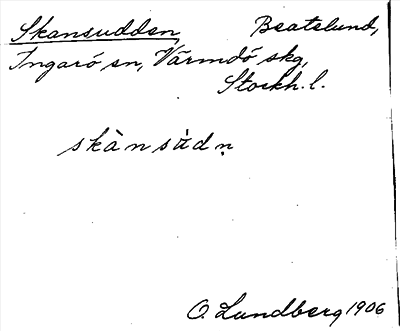 Skansudden, Beatelund,
Ingarö sn, Värmdö skg,
Stockh. l.
skànsùdṇ
O. Lundberg 1906